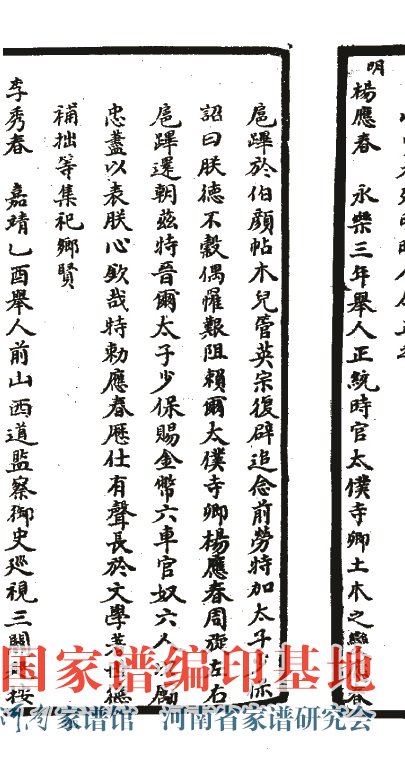 明
楊應春 永樂三年舉人正統時官太僕寺卿土木之變 春
扈蹕於伯顏帖木兒營英宗復辟追念前勞特加太子少保
詔曰朕德不穀偶罹艱阻賴爾太僕寺卿楊應春周旋左右
扈蹕還朝茲特晉爾太子少保賜金幣六車官奴六人以勵
忠藎以表朕心欽哉特勅應春歷仕有聲長於文學著 德
補拙等集祀鄉賢
李秀春 嘉靖乙酉舉人前山西道監察御史巡視三關 按
国家谱编印基地
家谱馆 河南省家谱研究会